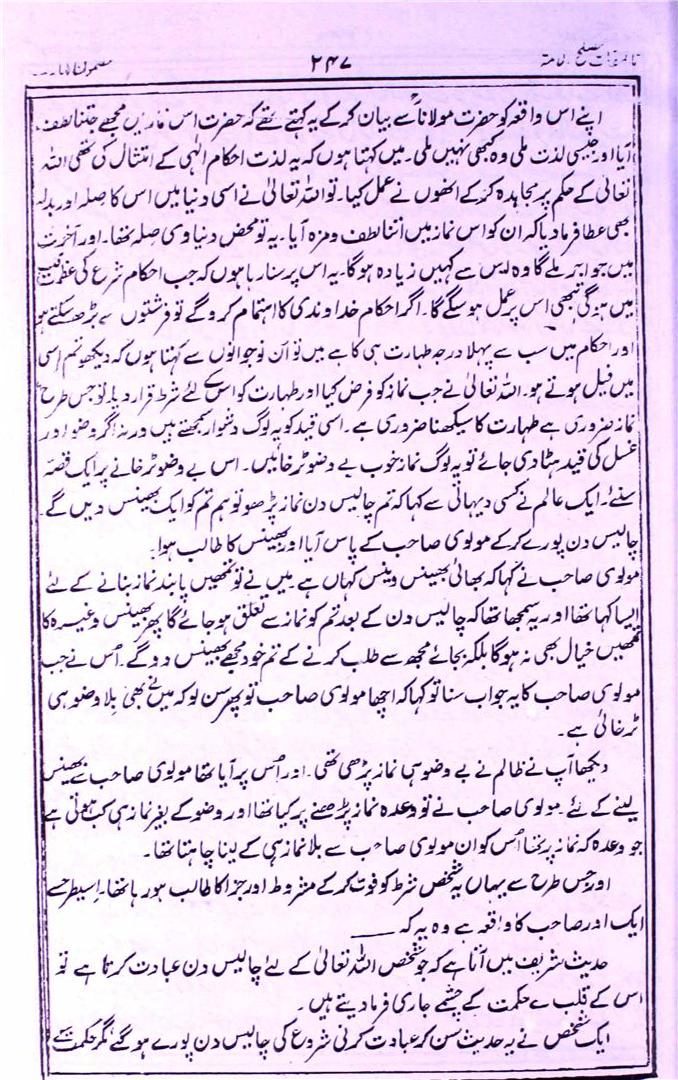 ۲۴۷
اپنے اس واقعہ کو حضرت مولاناؒ سے بیان کر کے یہ کہتے تھے کہ حضرت اس نماز میں مجھے جتنا لطف
آیا اور جیسی لذت ملی وہ کبھی نہیں ملی۔ میں کہتا ہوں کہ یہ لذت احکام الٰہی کے امتثال کی تھی اللہ
تعالیٰ کے حکم پر مجاہدہ کر کے انھوں نے عمل کیا۔ تو اللہ تعالیٰ نے اسی دنیا میں اس کا صلہ اور بدلہ
بھی عطا فرما دیا کہ ان کو اس نماز میں اتنا لطف و مزہ آیا۔ یہ تو محض دنیاوی صلہ تھا۔ اور آخرت
میں جو اجر ملے گا وہ اس سے کہیں زیادہ ہوگا۔ یہ اس پر سنا رہا ہوں کہ جب احکام شرع کی عظمت قلب
میں ہوگی تبھی اس پر عمل ہو سکے گا۔ اگر احکام خداوندی کا اہتمام کرو گے تو فرشتوں سے بڑھ سکتے ہو
اور احکام میں سب سے پہلا درجہ طہارت ہی کا ہے میں تو ان نوجوانوں سے کہتا ہوں کہ دیکھو تم اسی
میں فیل ہوتے ہو۔ اللہ تعالیٰ نے جب نماز کو فرض کیا اور طہارت کو اس کے لئے شرط قرار دیا۔ تو جس طرح
نماز ضروری ہے طہارت کا سیکھنا ضروری ہے۔ اسی قید کو یہ لوگ دشوار سمجھتے ہیں ورنہ اگر وضو اور
غسل کی قید ہٹا دی جائے تو یہ لوگ نماز خوب بے وضو ٹرخائیں۔ اس بے وضو ٹرخانے پر ایک قصہ
سنئے۔ ایک عالم نے کسی دیہاتی سے کہا کہ تم چالیس دن نماز پڑھو تو ہم تم کو ایک بھینس دیں گے۔
چالیس دن پورے کر کے مولوی صاحب کے پاس آیا اور بھینس کا طالب ہوا۔
مولوی صاحب نے کہا کہ بھائی بھینس وینس کہاں ہے میں نے تو تمھیں پابند نماز بنانے کے لئے
ایسا کہا تھا اور یہ سمجھا تھا کہ چالیس دن کے بعد تم کو نماز سے تعلق ہو جائے گا پھر بھینس وغیرہ کا
تمھیں خیال بھی نہ ہوگا بلکہ بجائے مجھ سے طلب کرنے کے تم خود مجھے بھینس دو گے۔ اُس نے جب
مولوی صاحب کا یہ جواب سنا تو کہا کہ اچھا مولوی صاحب تو پھر سن لو کہ میں نے بھی بلا وضو ہی
ٹرخائی ہے۔
دیکھا آپ نے ظالم نے بے وضو ہی نماز پڑھی تھی۔ اور اُس پر آیا تھا مولوی صاحب سے بھینس
لینے کے لئے۔ مولوی صاحب نے تو وعدہ نماز پڑھنے پر کیا تھا اور وضو کے بغیر نماز ہی کب ہوتی ہے
جو وعدہ کہ نماز پر تھا اُس کو ان مولوی صاحب سے بلا نماز ہی کے لینا چاہتا تھا۔
اور جس طرح سے یہاں یہ شخص شرط کو فوت کر کے مشروط اور جزا کا طالب ہو رہا تھا۔ اسیطرح سے
ایک اور صاحب کا واقعہ ہے وہ یہ کہ ——
حدیث شریف میں آتا ہے کہ جو شخص اللہ تعالیٰ کے لئے چالیس دن عبادت کرتا ہے تو
اس کے قلب سے حکمت کے چشمے جاری فرما دیتے ہیں۔
ایک شخص نے یہ حدیث سن کر عبادت کرنی شروع کی چالیس دن پورے ہو گئے مگر حکمت کے